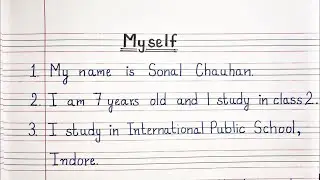 Myself
1. My name is Sonal Chauhan.
2. I am 7 years old and I study in class 2.
3. I study in International Public School,
Indore.